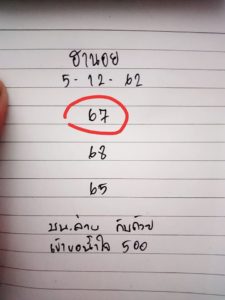 ฮานอย
5-12-62
67
68
65
บน.ล่าง กับด้วย
เข้าขอน้ำใจ 500